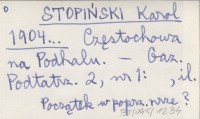 STOPIŃSKI Karol
1904... Częstochowa
na Podhalu. — Gaz.
Podtatrz. 2, nr 1: , il.
Początek w poprz. nrze ?